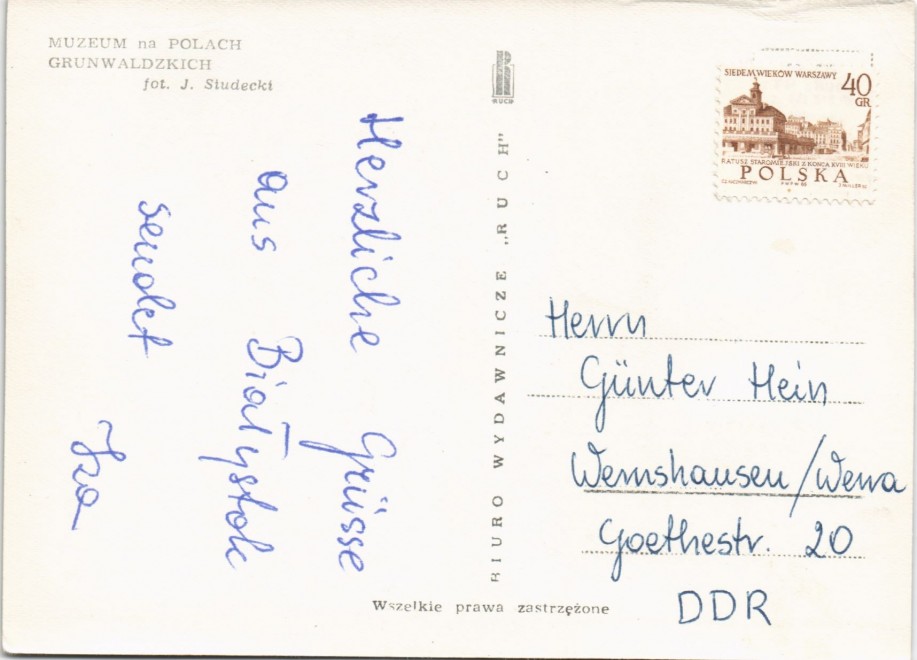 MUZEUM na POLACH
GRUNWALDZKICH
fot. J. Studecki
Herzliche Grüsse
aus Białystok
sendet
Iza
BIURO WYDAWNICZE „RUCH"
RUCH
SIEDEM WIEKÓW WARSZAWY
40
GR
RATUSZ STAROMIEJSKI Z KOŃCA XVIII WIEKU
POLSKA
Herrn
Günter Hein
Wernshausen/Werra
Goethestr. 20
DDR
Wszelkie prawa zastrzężone